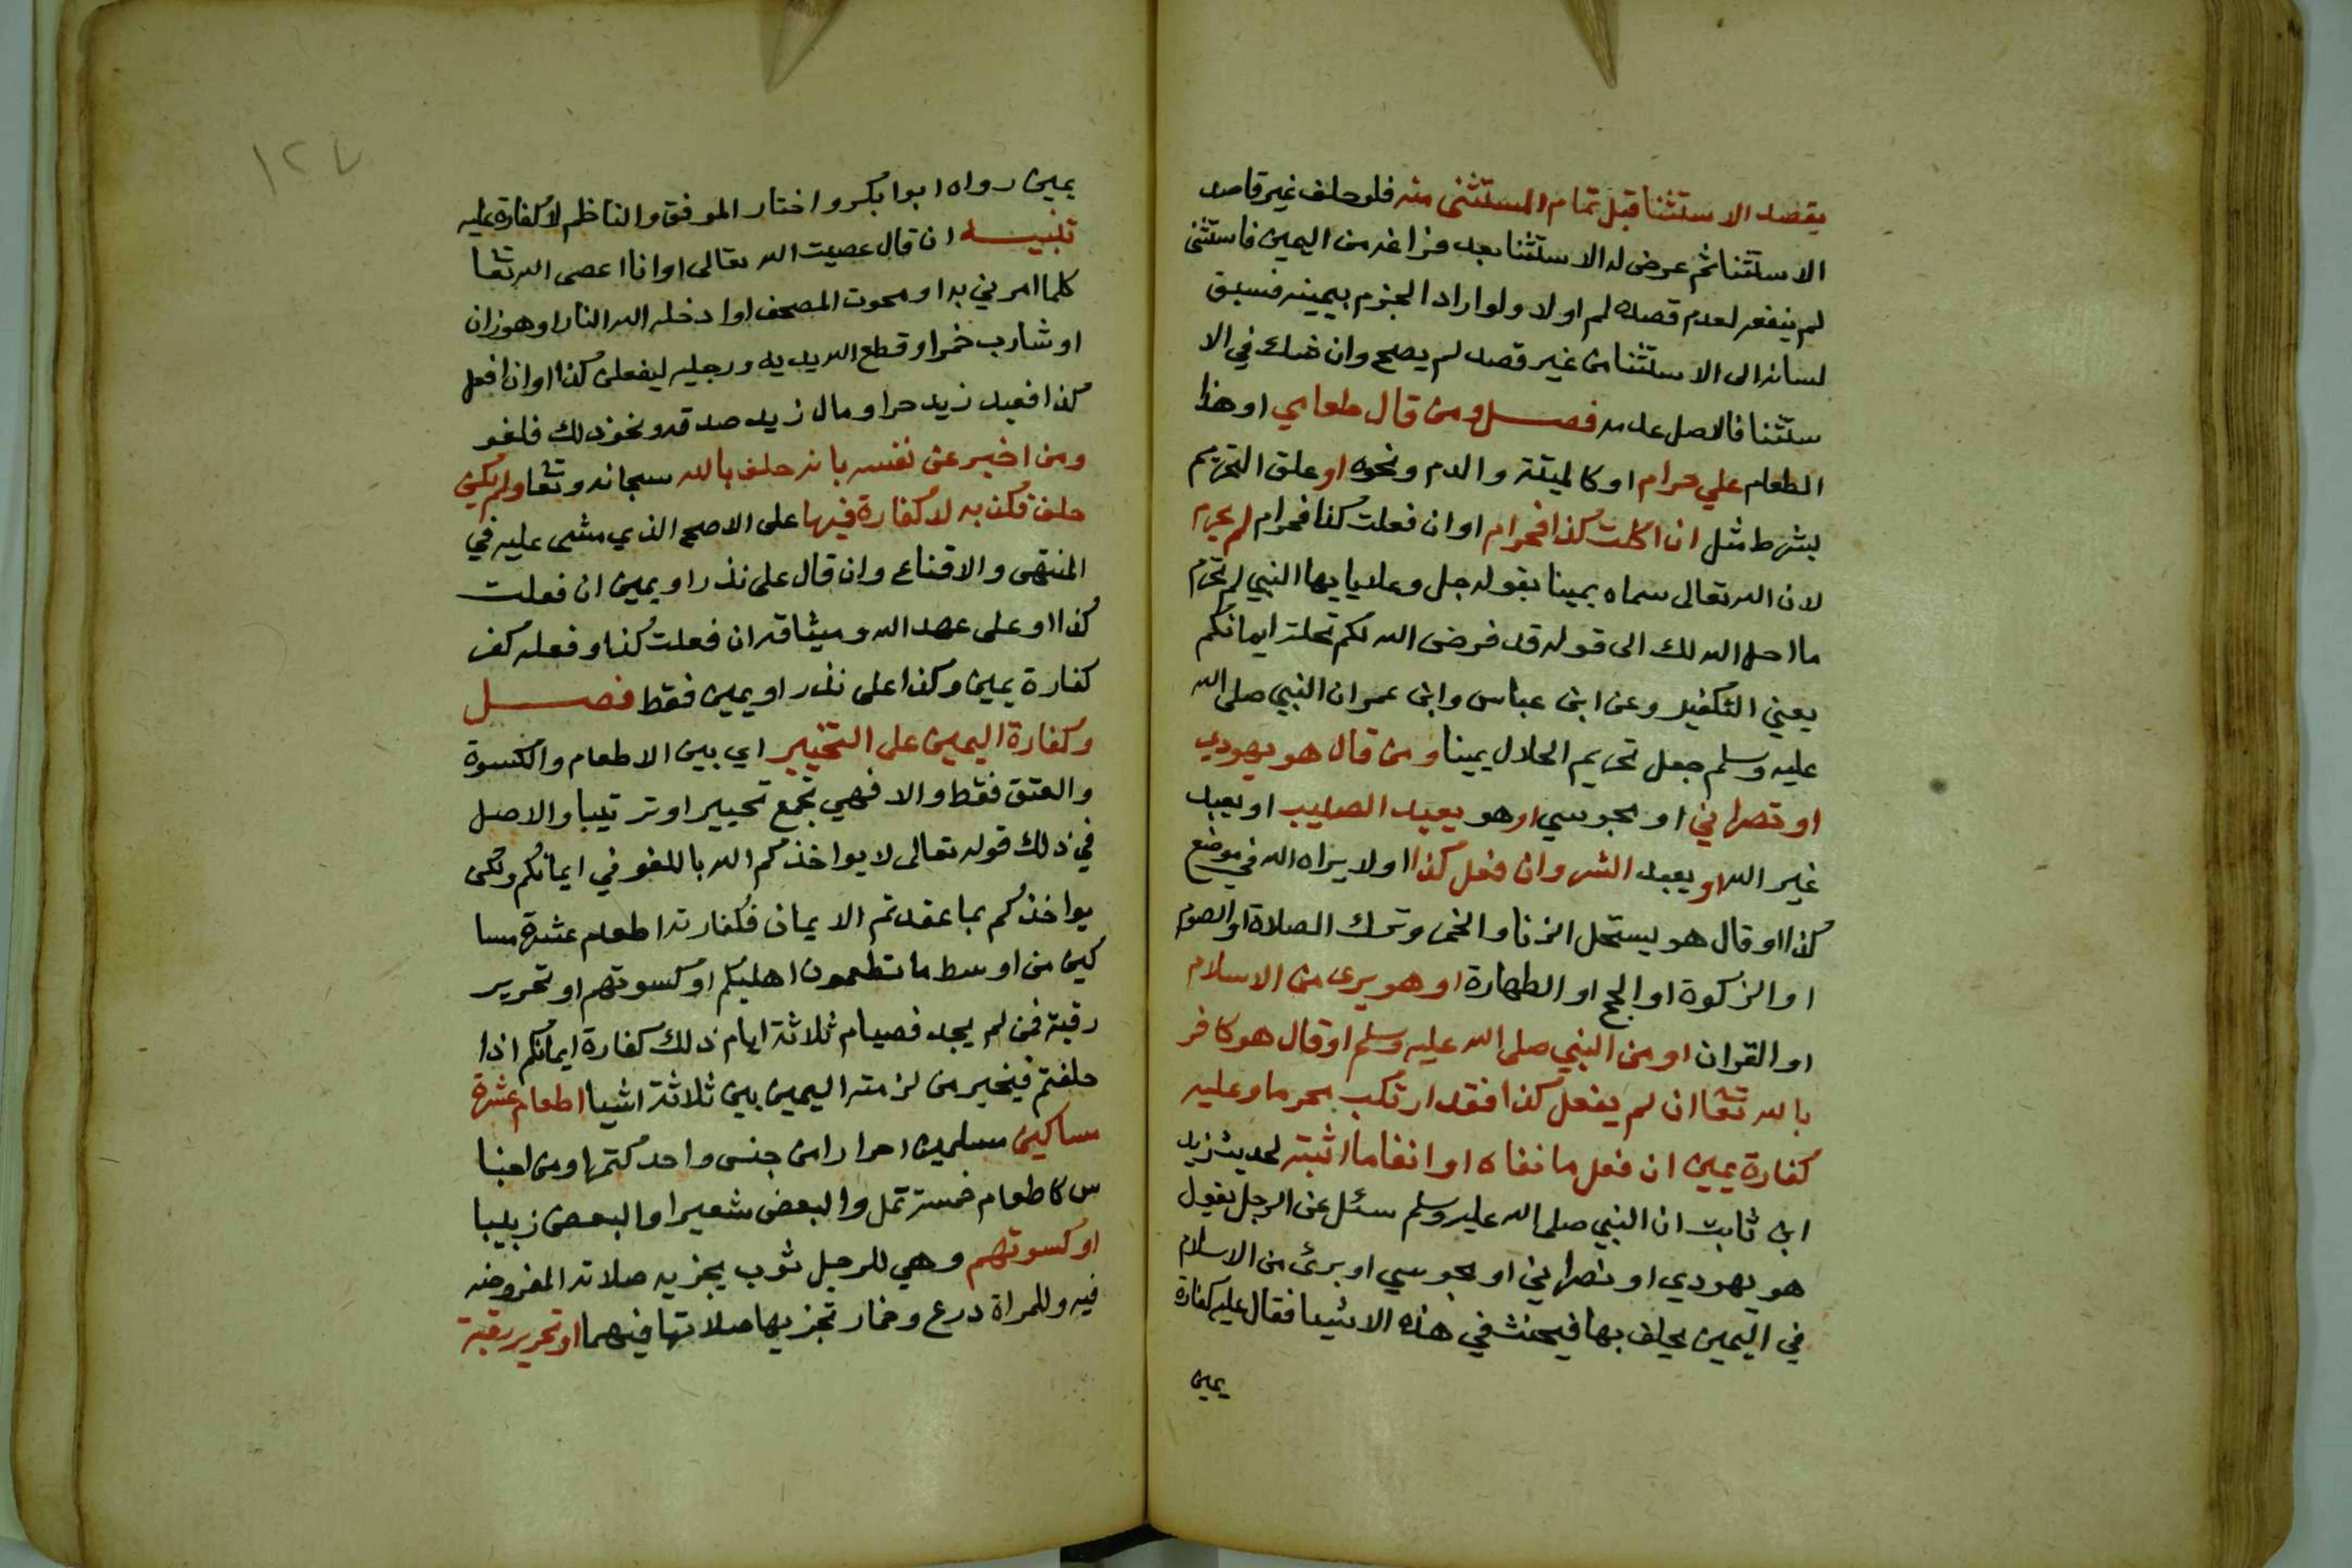 يقصد الاستثنا قبل تمام المستثنى منه فلو حلف غير قاصد
الاستثنا ثم عرض له الاستثنا بعد فراغه من اليمين فاستثنى
لم ينفعه لعدم قصده له اولا ولو اراد الجزم بيمينه فسبق
لسانه الى الاستثنا من غير قصد لم يصح وان شك في الا
ستثنا فالاصل عدمه فصل ومن قال طعامي او هذا
الطعام علي حرام او كالميتة والدم ونحوه او علق التحريم
بشرط مثل ان اكلت كذا فحرام او ان فعلت كذا فحرام لم يحرم
لان الله تعالى سماه يمينا بقوله جل وعلا يايها النبي لم تحرم
ما احل الله لك الى قوله قد فرض الله لكم تحلة ايمانكم
يعني التكفير وعن ابن عباس وابن عمر ان النبي صلى الله
عليه وسلم جعل تحريم الحلال يمينا ومن قال هو يهودي
او نصراني او مجوسي او هو يعبد الصليب او يعبد
غير الله او يعبد الشر وان فعل كذا او لا يراه الله في موضع
كذا او قال هو يستحل الزنا والخمر وترك الصلاة او الصوم
او الزكوة او الحج او الطهارة او هو بري من الاسلام
او القران او من النبي صلى الله عليه وسلم او قال هو كافر
بالله تعا ان لم يفعل كذا فقد ارتكب محرما وعليه
كفارة يمين ان فعل ما نفاه او انفا ما اثبته لحديث زيد
ابن ثابت ان النبي صلى الله عليه وسلم سئل عن الرجل يقول
هو يهودي او نصراني او مجوسي او برئ من الاسلام
في اليمين يحلف بها فيحنث في هذه الاشيا فقال عليه كفارة
يمين
١٢٧
يمين رواه ابوا بكر واختار الموفق والناظم لا كفارة عليه
تنبيه ان قال عصيت الله تعالى او انا اعصى الله تعا
كلما امرني به او محوت المصحف او ادخله الله النار او هو زان
او شارب خمر او قطع الله يديه ورجليه ليفعلن كذا او ان افعل
كذا فعبد زيد حرا ومال زيد صدقه ونحو ذلك فلغو
ومن اخبر عن نفسه بانه حلف بالله سبحانه وتعا ولم يكن
حلف فكذبه لا كفارة فيها على الاصح الذي مشى عليه في
المنتهى والاقناع وان قال علي نذر او يمين ان فعلت
كذا او علي عهد الله وميثاقه ان فعلت كذا وفعله كفر
كفارة يمين وكذا علي نذر او يمين فقط فصل
وكفارة اليمين على التخيير اي بين الاطعام والكسوة
والعتق فقط والا فهي تجمع تخييرا وترتيبا والاصل
في ذلك قوله تعالى لا يواخذكم الله باللغو في ايمانكم ولكن
يواخذكم بما عقدتم الايمان فكفارته اطعام عشرة مسا
كين من اوسط ما تطعمون اهليكم او كسوتهم او تحرير
رقبة فمن لم يجد فصيام ثلاثة ايام ذلك كفارة ايمانكم اذا
حلفتم فيخير من لزمته اليمين بين ثلاثة اشيا اطعام عشرة
مساكين مسلمين احرارا من جنس واحد كتمر او من اجنا
س كاطعام خمسة تمرا والبعض شعيرا والبعض زبيبا
او كسوتهم وهي للرجل ثوب يجزيه صلاته المفروضه
فيه وللمراة درع وخمار تجزيها صلاتها فيهما او تحرير رقبة